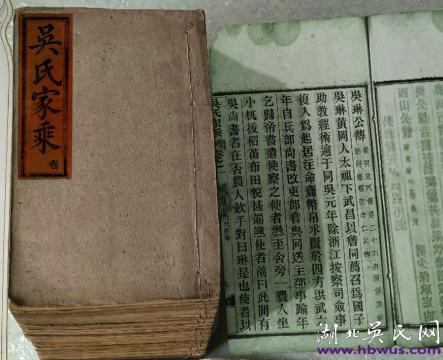 吳氏家乘
卷
吳琳公傳
吳琳黃岡人太祖下武昌以詹同薦召爲國子
助教經術逾于同吳元年除浙江按察司僉事
復入爲起居注命齎幣帛求賢於四方洪武六
年自兵部尚書改吏部嘗與同迭主部事踰年
乞歸帝嘗遣使察之使者潛至舍旁一農人坐
小杌拔稻苗布田貌甚端謹使者前曰此間有
吳尚書者在否農人歛手對曰琳是也使者以
吳氏家乘 卷之一
湖北吴氏网
www.hbwus.com